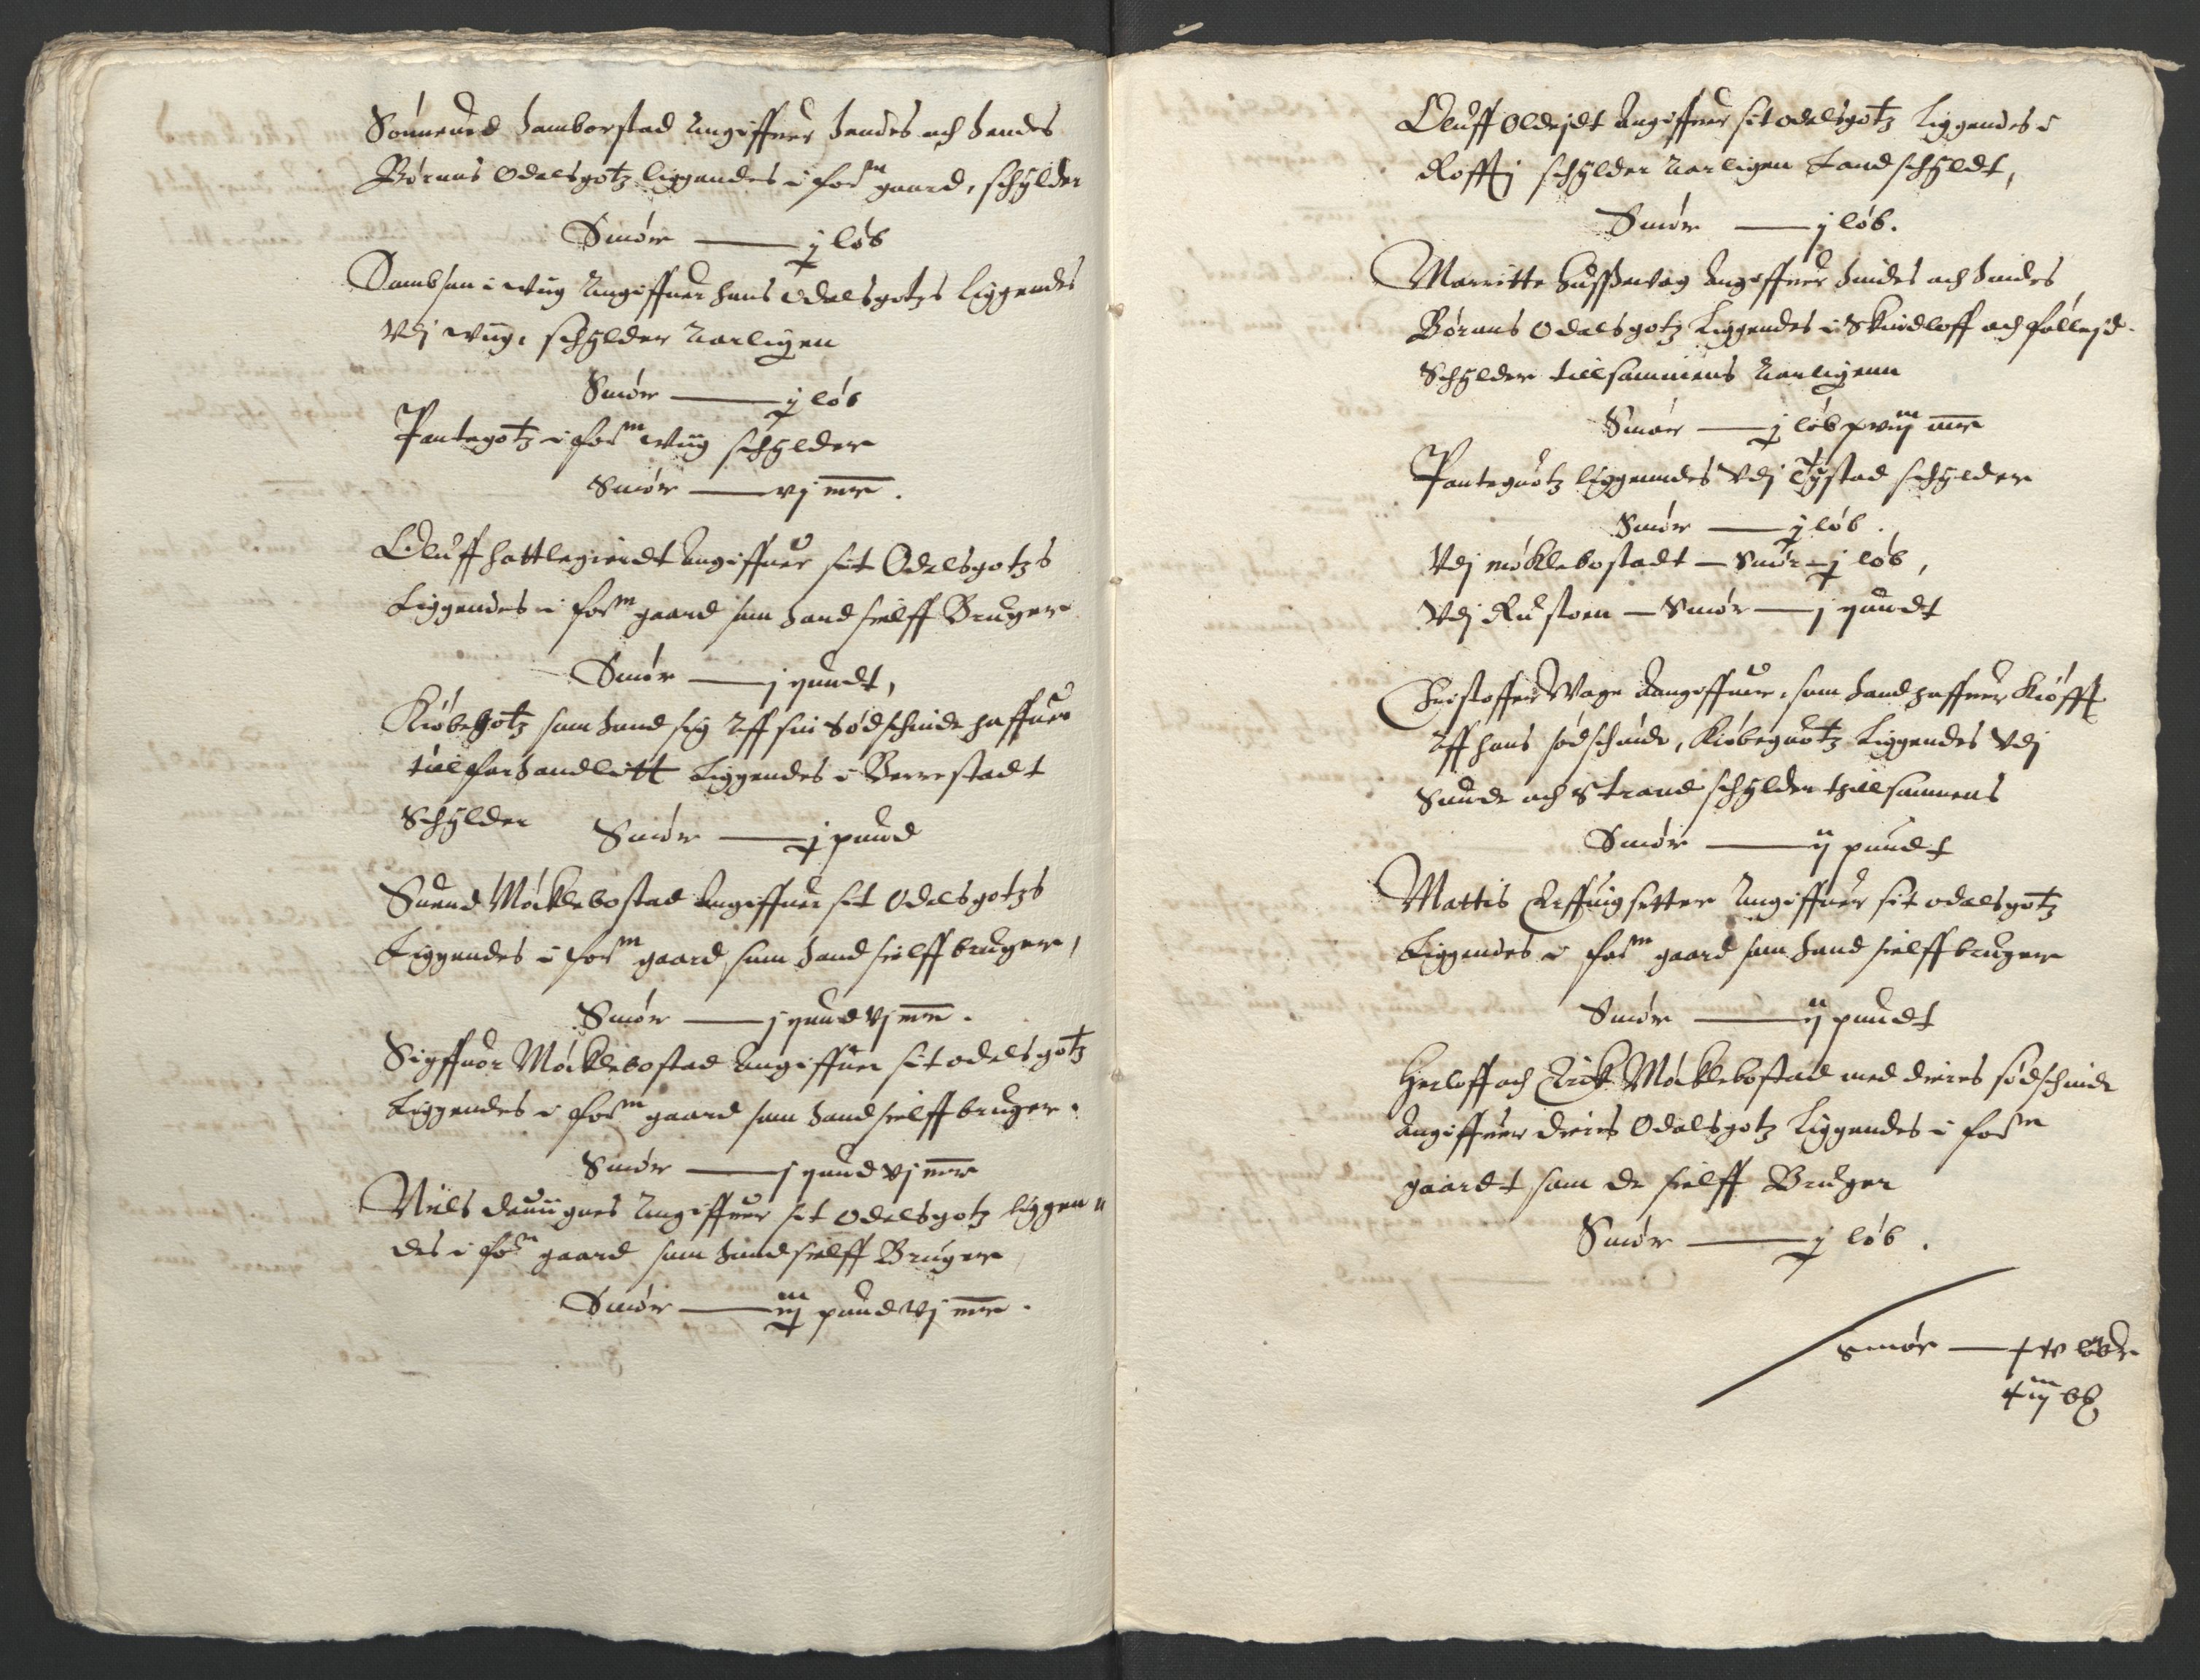 Sønneued Hamborstad Angiffuer hendes och hendes
Børnns Odelsgotz liggendes i for:m gaard, schylder
Smør — j løb
i wiig Angiffuer hans odelsgotzs liggendes
Vdj wiig, schylder aarligen
Smør — j løb
Pantegotz i for:m wiig schylder
Smør — vj mrk.
Oluff hattlegierdt Angiffuer sit Odelsgotzs
Liggendes i for:m gaard som hand sielff Bruger
Smør — j pundt,
Kiøbegotz som hand sig Aff sin Sødschinde haffuer
till forhandlitt Liggendes i Berrestadt
Schylder Smør — j pund
Suend Møcklebostad Angiffuer sit Odelsgotzs
Liggendes i for:m gaard som hand sielff bruger,
Smør — j pund vj mrk.
Sigffuor Møcklebostad Angiffuer sit odelsgotz
Liggendes i for:m gaard som hand sielff bruger.
Smør — j pund vj mrk
Niels Angiffuer sit odelsgotz liggen
des i for:m gaard som hand sielff Bruger
Smør — iij pund vj mrk.
Oluff Oldejdt Angiffuer sit odelsgotz liggendes i
schylder aarligen Landschyldt,
Smør — j løb.
Marritte Angiffuer hindes och hindes
Børnns Odelsgotz Liggendes i Skeidloff och
Schylder tillsammens Aarligenn
Smør — j løb xviij mrk
Panteguotz liggenndes Vdj Tystad schylder
Smør — j løb.
Vdj møcklebostadt — Smør — j løb,
Vdj Rustøen — Smør — j pundt
Christoffer Wage Aangiffuer, som hand haffuer Kiøfft
Aff hans sødschinde, Kiøbeguotz Liggendes Vdj
Sunde och Strand schylder thilsammens
Smør — ij pundt
Mattis Angiffuer sit odelsgotz
Liggendes i for:m gaard som hand sielff bruger
Smør — ij pundt
Herloff och Erick Møcklebostad med dieres sødschinde
Angiffuer dieris Odelsgotz Liggendes i for:m
gaardt som de sielff Bruger
Smør — j løb.
Smør —